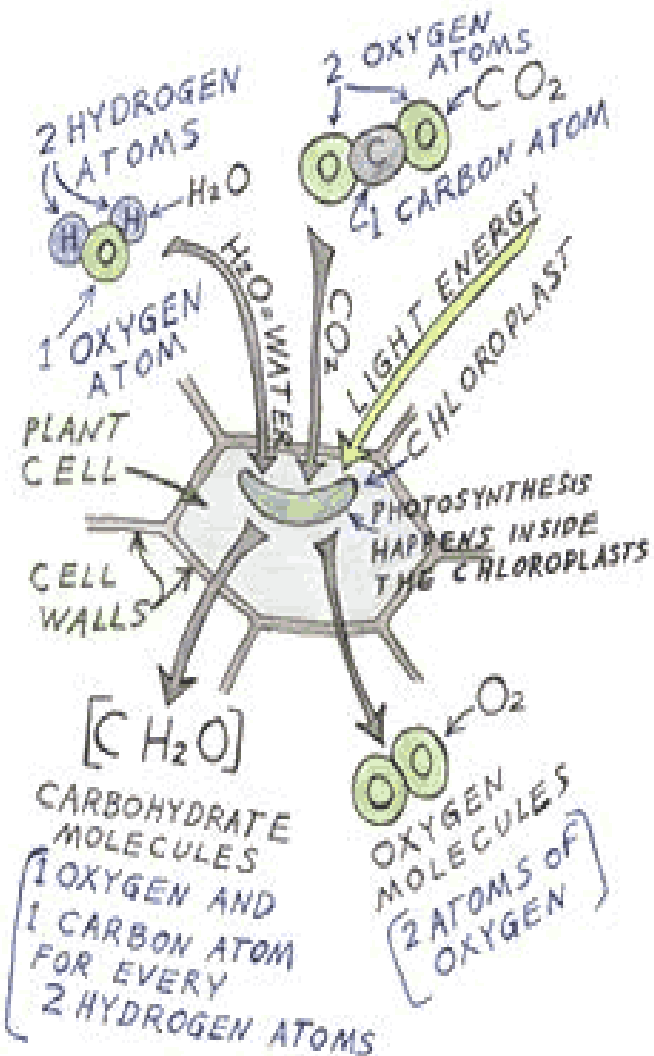 2 OXYGEN
ATOMS
CO2
O C O
1 CARBON ATOM
2 HYDROGEN
ATOMS
H2O
H H
O
1 OXYGEN
ATOM
H2O=WATER
CO2
LIGHT ENERGY
CHLOROPLAST
PLANT
CELL
PHOTOSYNTHESIS
HAPPENS INSIDE
THE CHLOROPLASTS
CELL
WALLS
[CH2O]
CARBOHYDRATE
MOLECULES
(1 OXYGEN AND
1 CARBON ATOM
FOR EVERY
2 HYDROGEN ATOMS
O2
O O
OXYGEN
MOLECULES
(2 ATOMS OF
OXYGEN)